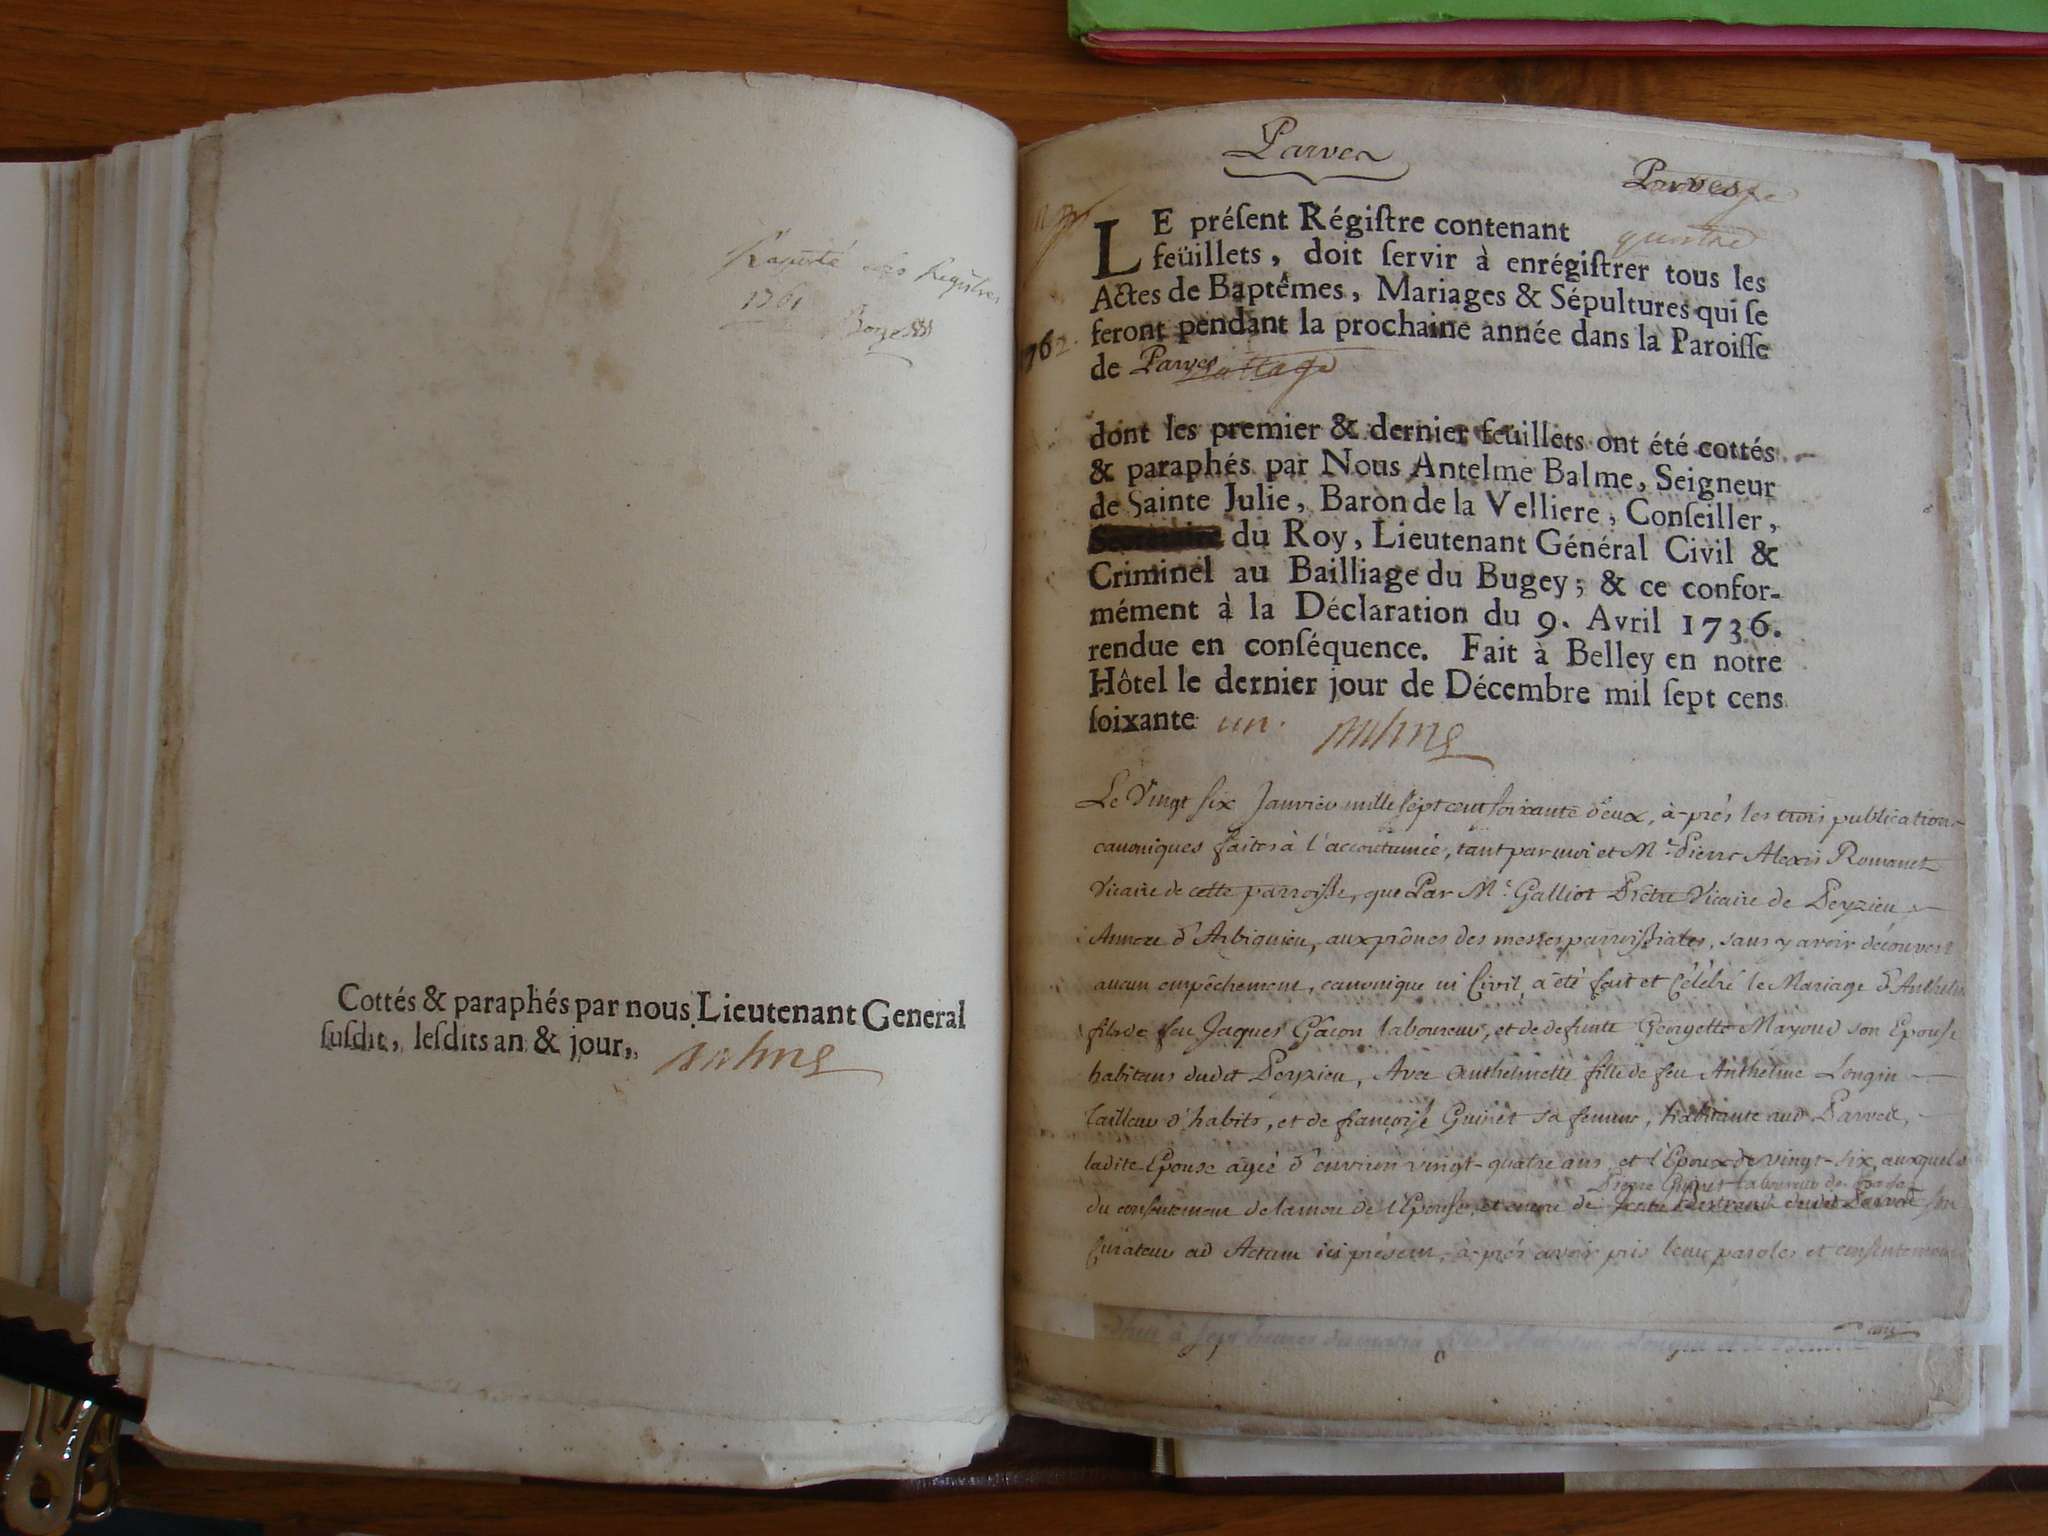 1761
Cottés & paraphés par nous Lieutenant General
suſdit, leſdits an & jour,
Parves
Parves
LE préſent Régiſtre contenant quatre
feüillets, doit ſervir à enrégiſtrer tous les
Actes de Baptêmes, Mariages & Sépultures qui ſe
feront pendant la prochaine année dans la Paroiſſe
1762.
de Parves
dont les premier & dernier feuillets ont été cottés
& paraphés par Nous Antelme Balme, Seigneur
de Sainte Julie, Baron de la Velliere, Conſeiller,
du Roy, Lieutenant Général Civil &
Criminel au Bailliage du Bugey; & ce confor-
mément à la Déclaration du 9. Avril 1736.
rendue en conſéquence. Fait à Belley en notre
Hôtel le dernier jour de Décembre mil ſept cens
ſoixante un.
Le Vingt six Janvier mille sept cent soixante deux, à-prés les trois publications
canoniques faites à l'accoutumée, tant par moi et Mr. Pierre Alexis Romanet
Vicaire de cette parroisse, que Par Mr. Galliot Prêtre Vicaire de Peyzieu
Annexe d'Arbignieu, aux prônes des messes parroissiales, sans y avoir découvert
aucun empêchement, canonique ni Civil, a été fait et Célébré le Mariage d'Anthelme
fils de feu Jaques Gacon laboureur, et de defunte Georgette Mayoud son Epouse
habitans dudit Peyzieu, Avec Anthelmette fille de feu Anthelme Longin
tailleur d'habits, et de françoise Guinet sa femme, habitante aud. Parves,
ladite Epouse agée d'environ vingt-quatre ans, et l'Epoux de vingt-six, auxquels
Pierre Guinet laboureur de
du consentement de la mere de l'Epouse, et encore de dudit Parves son
Curateur ad Actum ici présent, à-prés avoir pris leurs paroles et consentement